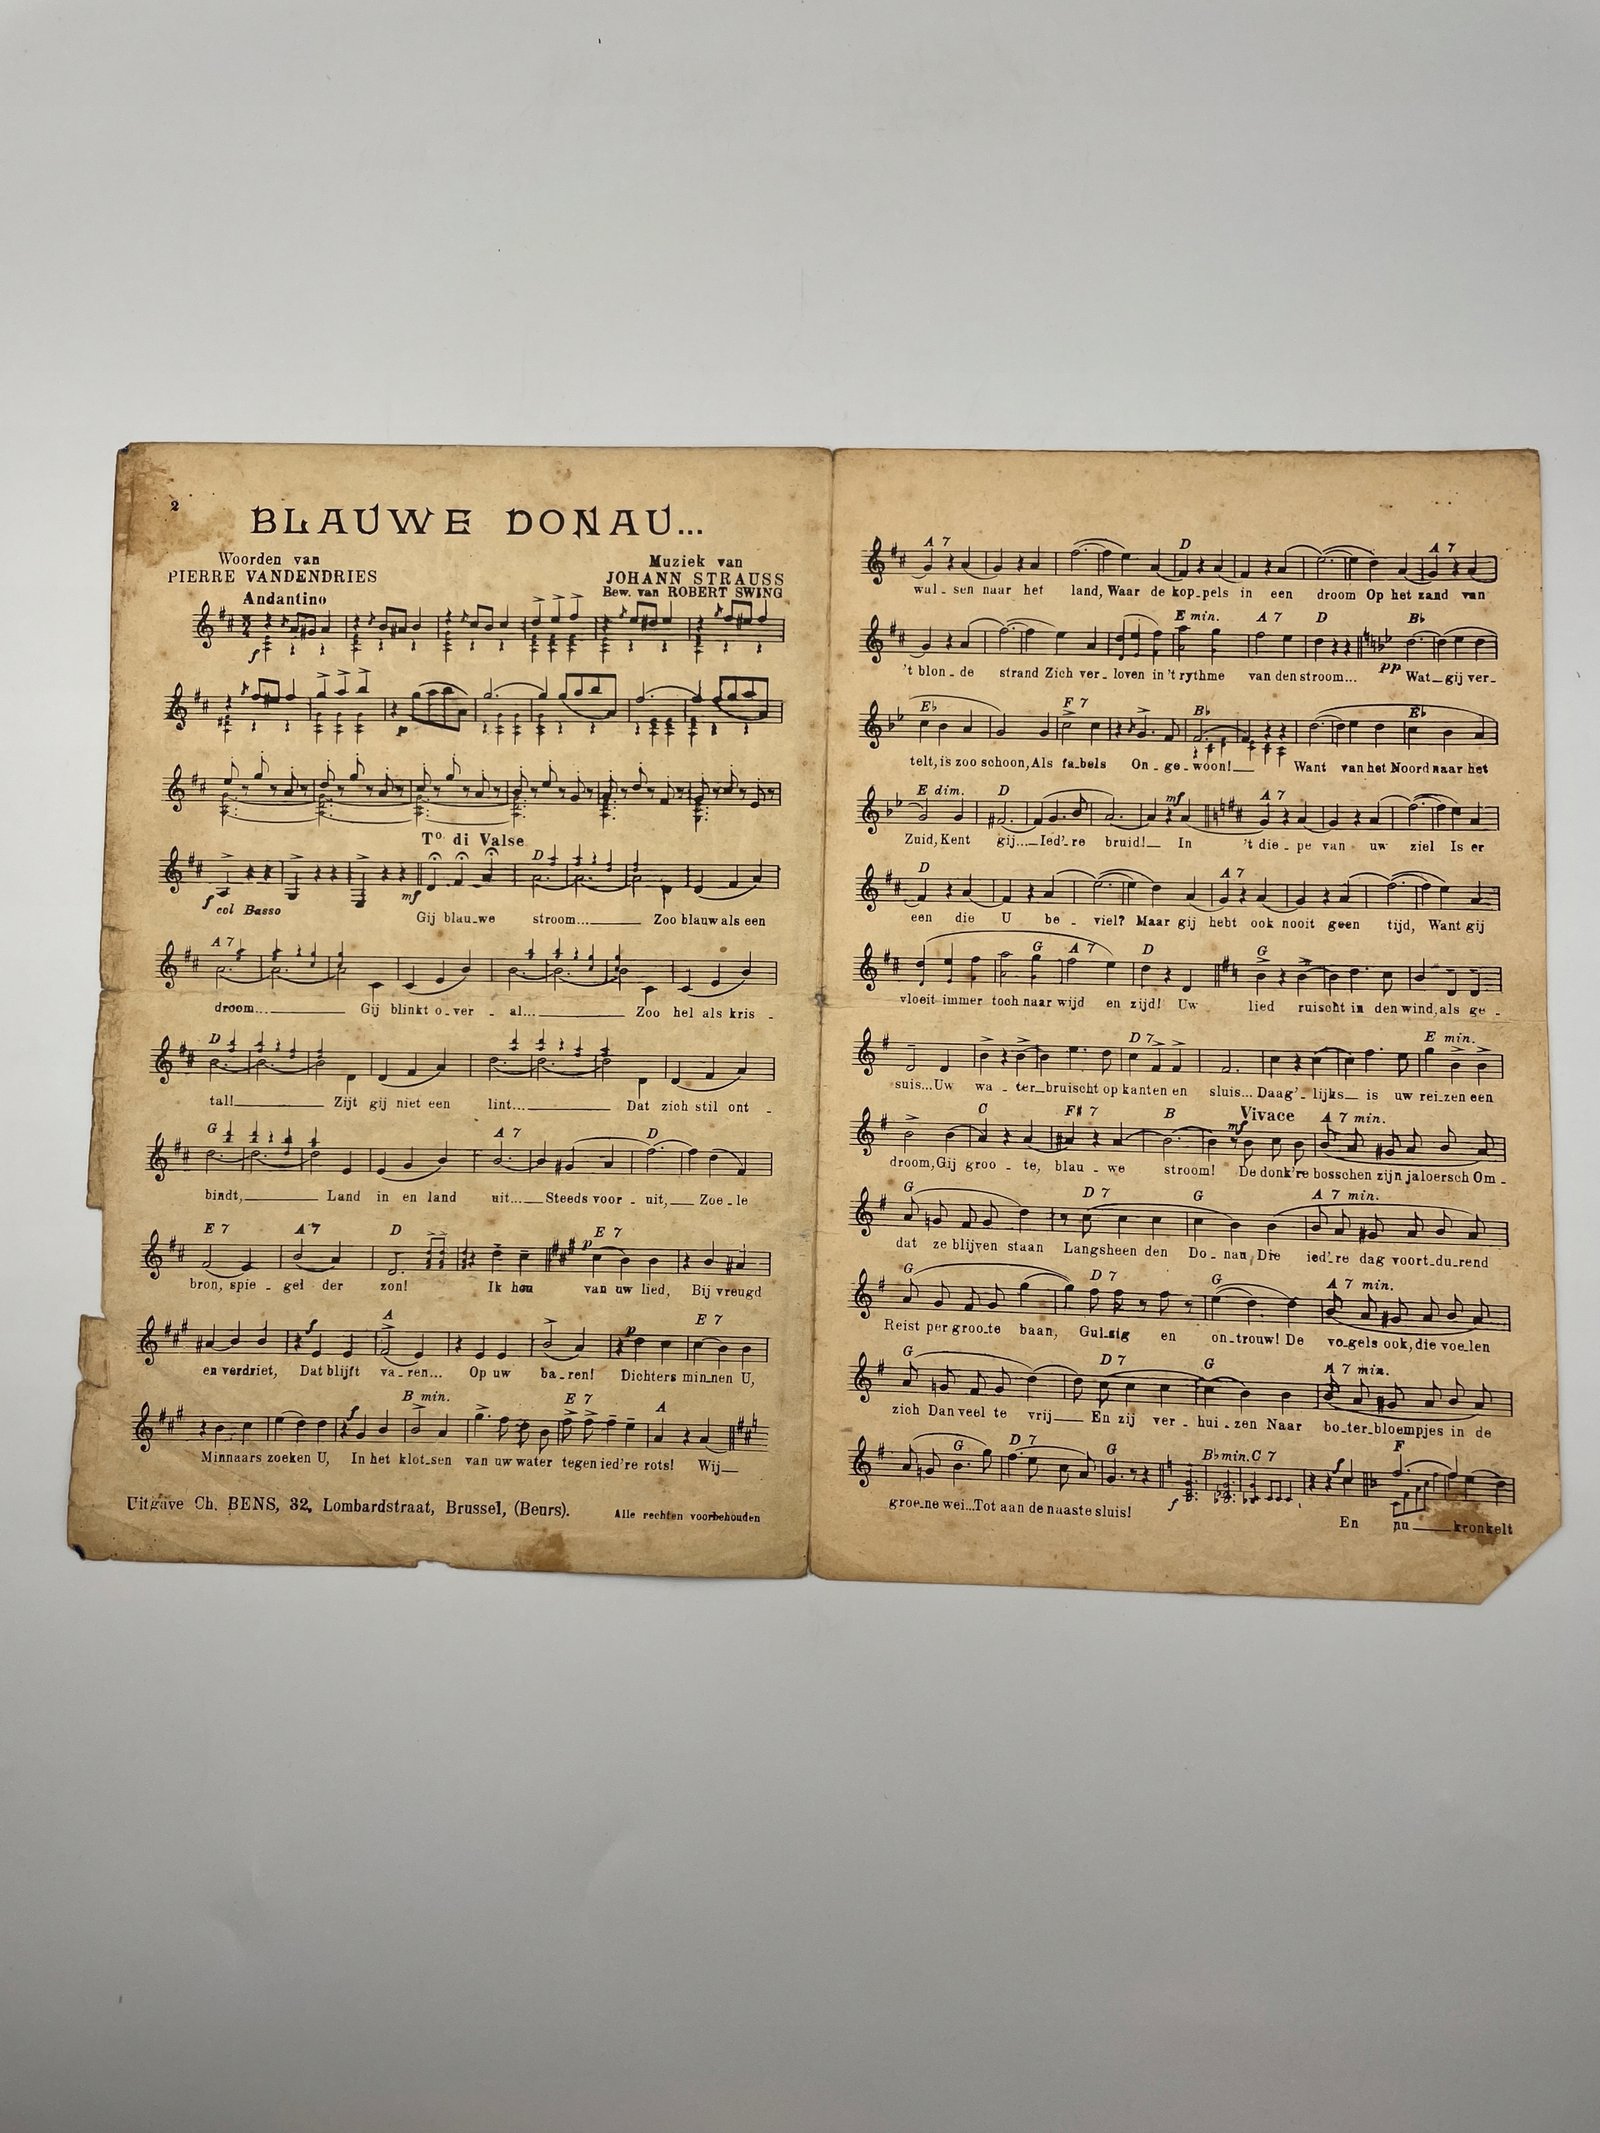 2
BLAUWE DONAU...
Woorden van
PIERRE VANDENDRIES
Muziek van
JOHANN STRAUSS
Bew. van ROBERT SWING
Andantino
f
p
To. di Valse
f col Basso mf D
Gij blau-we stroom... Zoo blauw als een
A 7
droom... Gij blinkt o-ver - al... Zoo hel als kris -
D
tal! Zijt gij niet een lint... Dat zich stil ont -
G A 7 D
bindt, Land in en land uit... Steeds voor - uit, Zoe-le
E 7 A 7 D p E 7
bron, spie - gel der zon! Ik hou van uw lied, Bij vreugd
f A p E 7
en verdriet, Dat blijft va-ren... Op uw ba-ren! Dichters min-nen U,
f B min. E 7 A
Minnaars zoeken U, In het klot-sen van uw water tegen ied're rots! Wij
Uitgave Ch. BENS, 32, Lombardstraat, Brussel, (Beurs). Alle rechten voorbehouden
A 7 D A 7
wal - sen naar het land, Waar de kop-pels in een droom Op het zand van
E min. A 7 D pp B♭
't blon - de strand Zich ver - loven in 't rythme van den stroom... Wat gij ver-
E♭ F 7 B♭ E♭
telt, is zoo schoon, Als fa-bels On - ge - woon! Want van het Noord naar het
E dim. D mf A 7
Zuid, Kent gij... Ied'-re bruid! In 't die - pe van uw ziel Is er
D A 7
een die U be - viel? Maar gij hebt ook nooit geen tijd, Want gij
G A 7 D G
vloeit immer toch naar wijd en zijd! Uw lied ruischt in den wind, als ge -
D 7 E min.
suis... Uw wa - ter bruischt op kanten en sluis... Daag'-lijks is uw rei-zen een
C F# 7 B mf Vivace A 7 min.
droom, Gij groo - te, blau - we stroom! De donk're bosschen zijn jaloersch Om -
G D 7 G A 7 min.
dat ze blijven staan Langsheen den Do - nau, Die ied'-re dag voort-du-rend
G D 7 G A 7 min.
Reist per groo-te baan, Gul-zig en on-trouw! De vo-gels ook, die voe-len
G D 7 G A 7 min.
zich Dan veel te vrij En zij ver - hui - zen Naar bo-ter-bloempjes in de
G D 7 G f B♭min. C 7 f F
groe-ne wei... Tot aan de naaste sluis! En nu kronkelt